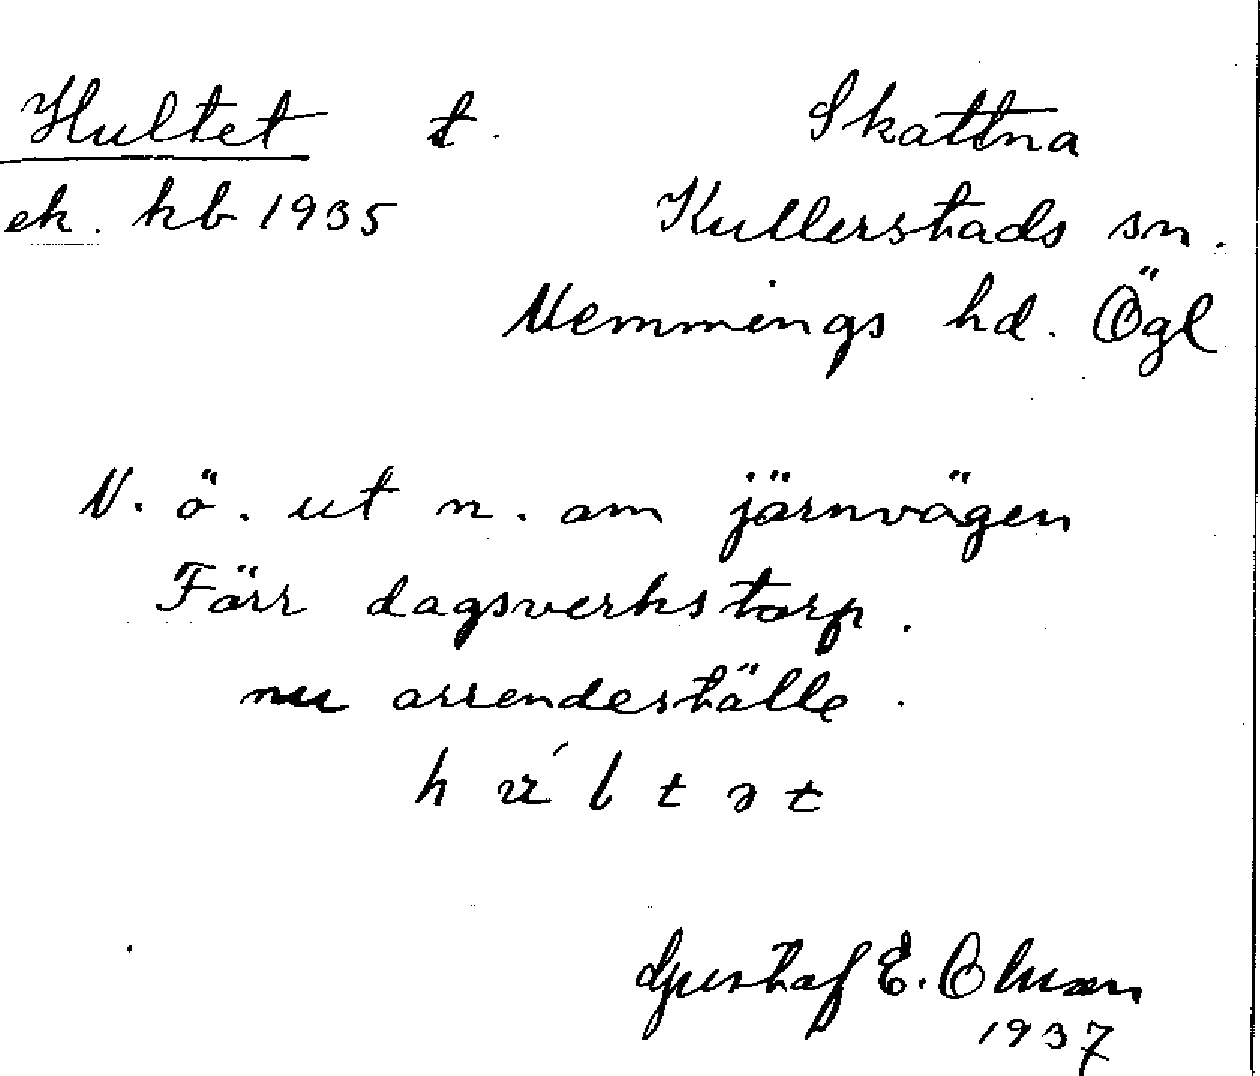 Hultet t. Skattna
ek. kb 1935 Kullerstads sn.
Memmings hd. Ögl
N. ö. ut n. om järnvägen
Förr dagsverkstorp.
nu arrendeställe.
Gustaf E. Olsson
1937